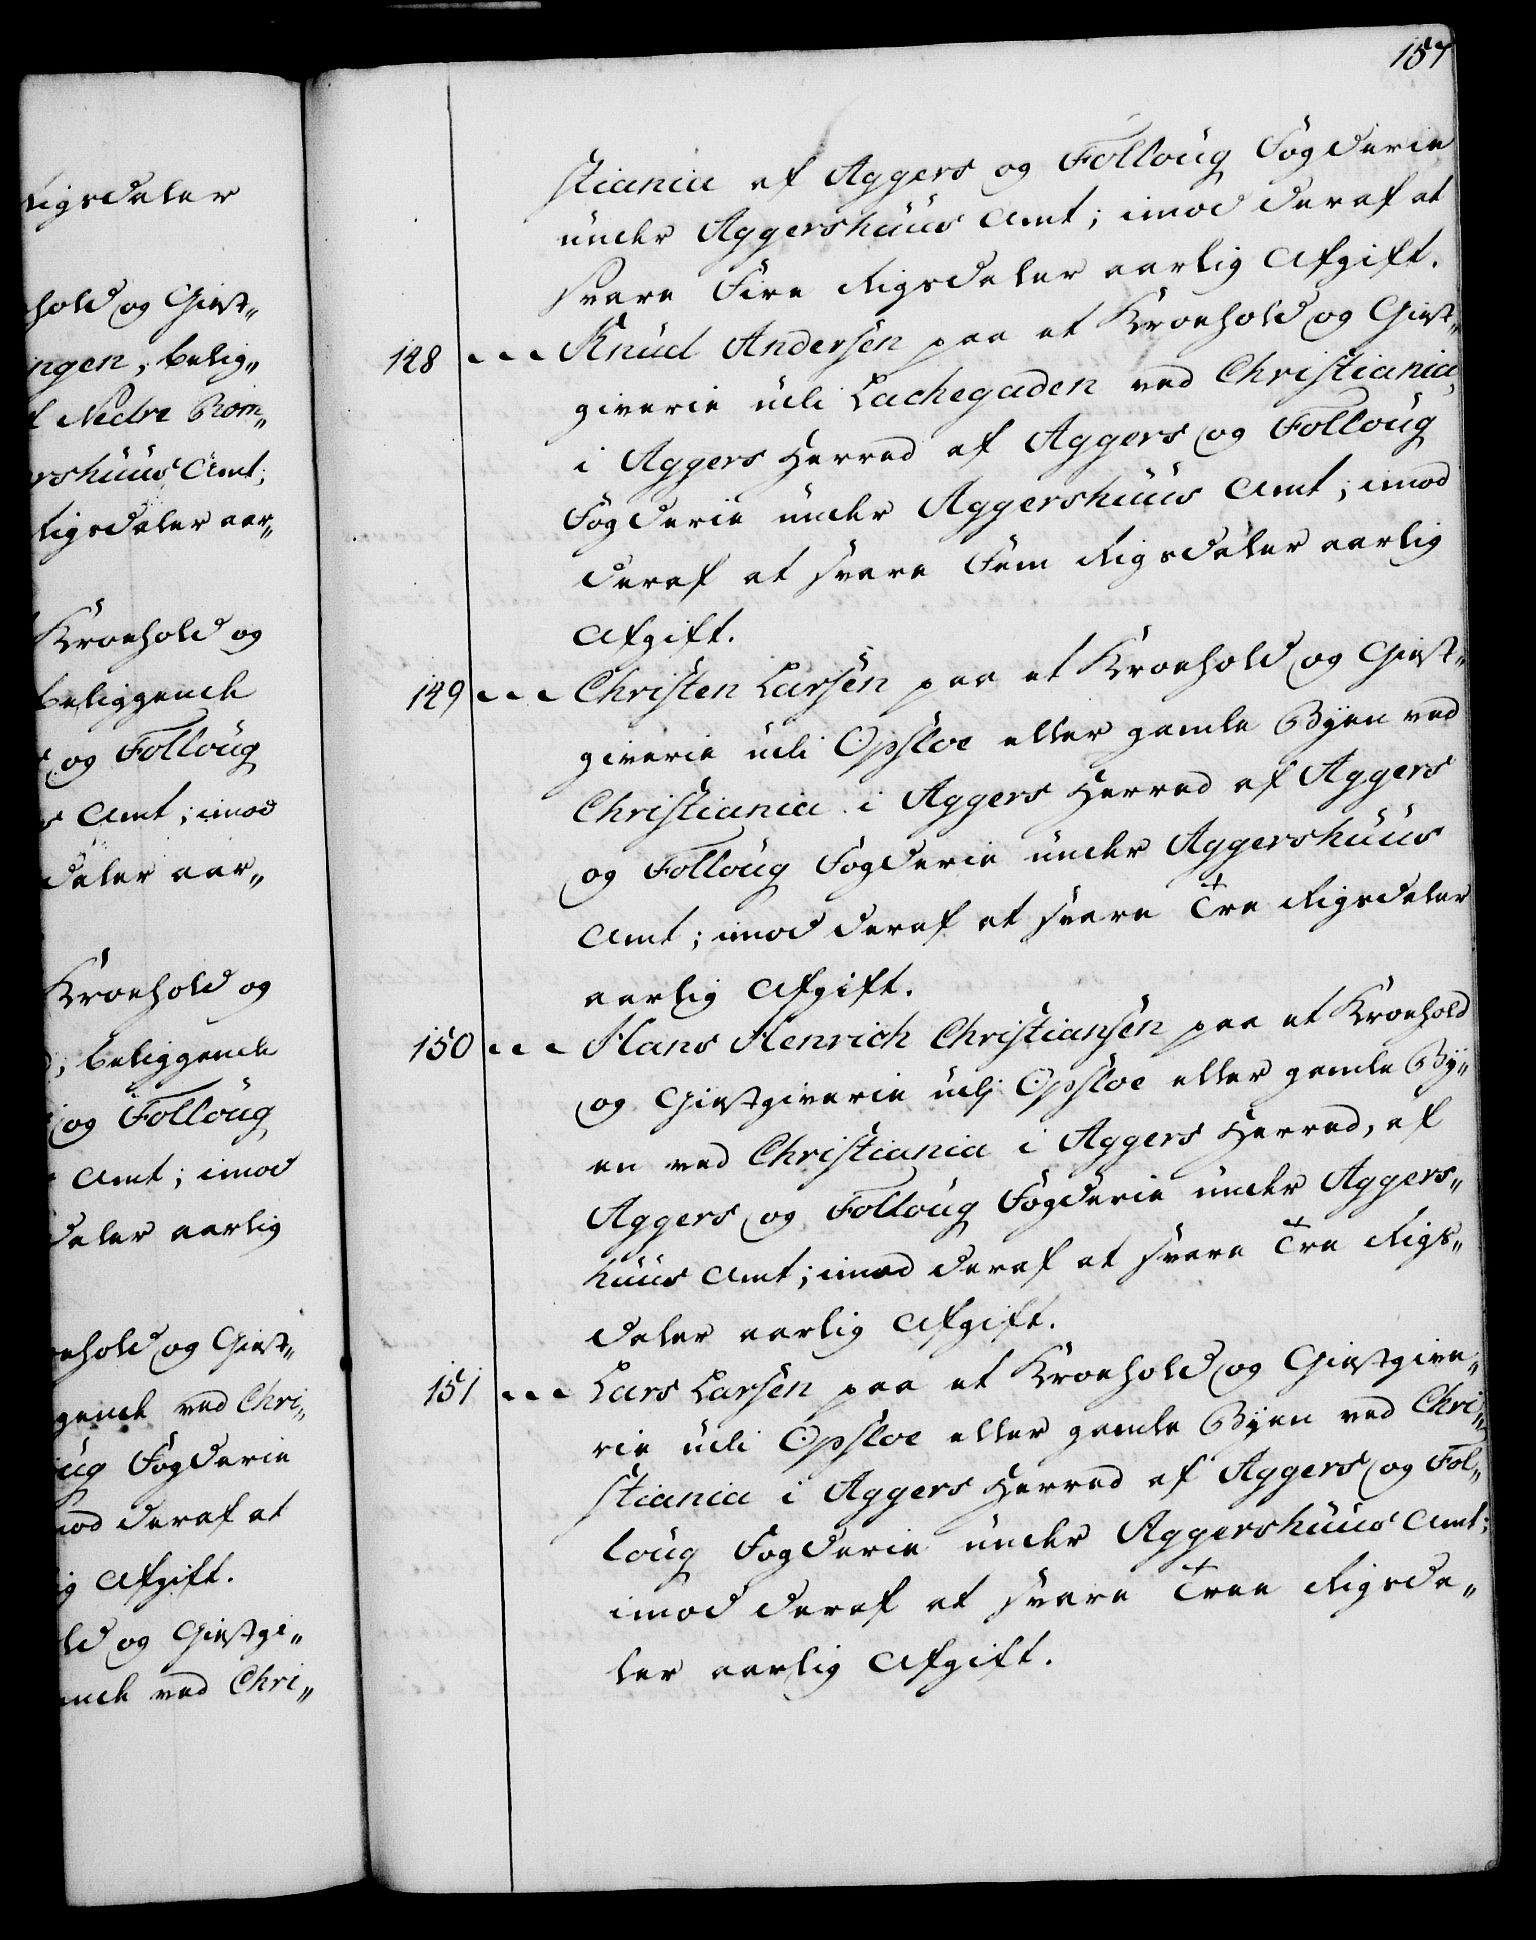 Rigsdaler
hold og Giest„
ngen, belig„
l Nedre Rom„
rshuus Amt;
Rigsdaler aar„
Kroehold og
beliggende
og Folloug
s Amt; imod
daler aar„
Kroehold og
d, beliggende
og Folloug
Amt; imod
daler aarlig
oehold og Giest„
gende ved Chri„
oug Fogderie
mod deraf at
ig Afgift.
ld og Giestgi„
ende ved Chri„
157
stiania af Aggers og Folloug Fogderie
under Aggershuus Amt; imod deraf at
svare Fire Rigsdaler aarlig Afgift.
148 - - - Knud Andersen paa et Kroehold og Giest„
giverie udi Lachegaden ved Christiania,
i Aggers Herred af Aggers og Folloug
Fogderie under Aggershuus Amt; imod
deraf at svare Fem Rigsdaler aarlig
Afgift.
149 - - - Christen Larsen paa et Kroehold og Giest„
giverie udi Opsloe eller gamle Byen ved
Christiania i Aggers Herred af Aggers
og Folloug Fogderie under Aggershuus
Amt; imod deraf at svare Tre Rigsdaler
aarlig Afgift.
150 - - - Hans Henrich Christiansen paa et Kroehold
og Giestgiverie udj Opsloe eller gamle By„
en ved Christiania i Aggers Herred, af
Aggers og Folloug Fogderie under Aggers„
huus Amt; imod deraf at svare Tre Rigs„
daler aarlig Afgift.
151 - - - Lars Larsen paa et Kroehold og Giestgive„
rie udi Opsloe eller gamle Byen ved Chri„
stiania i Aggers Herred af Aggers og Fol„
loug Fogderie under Aggershuus Amt;
imod deraf at svare Tree Rigsda„
ler aarlig Afgift.